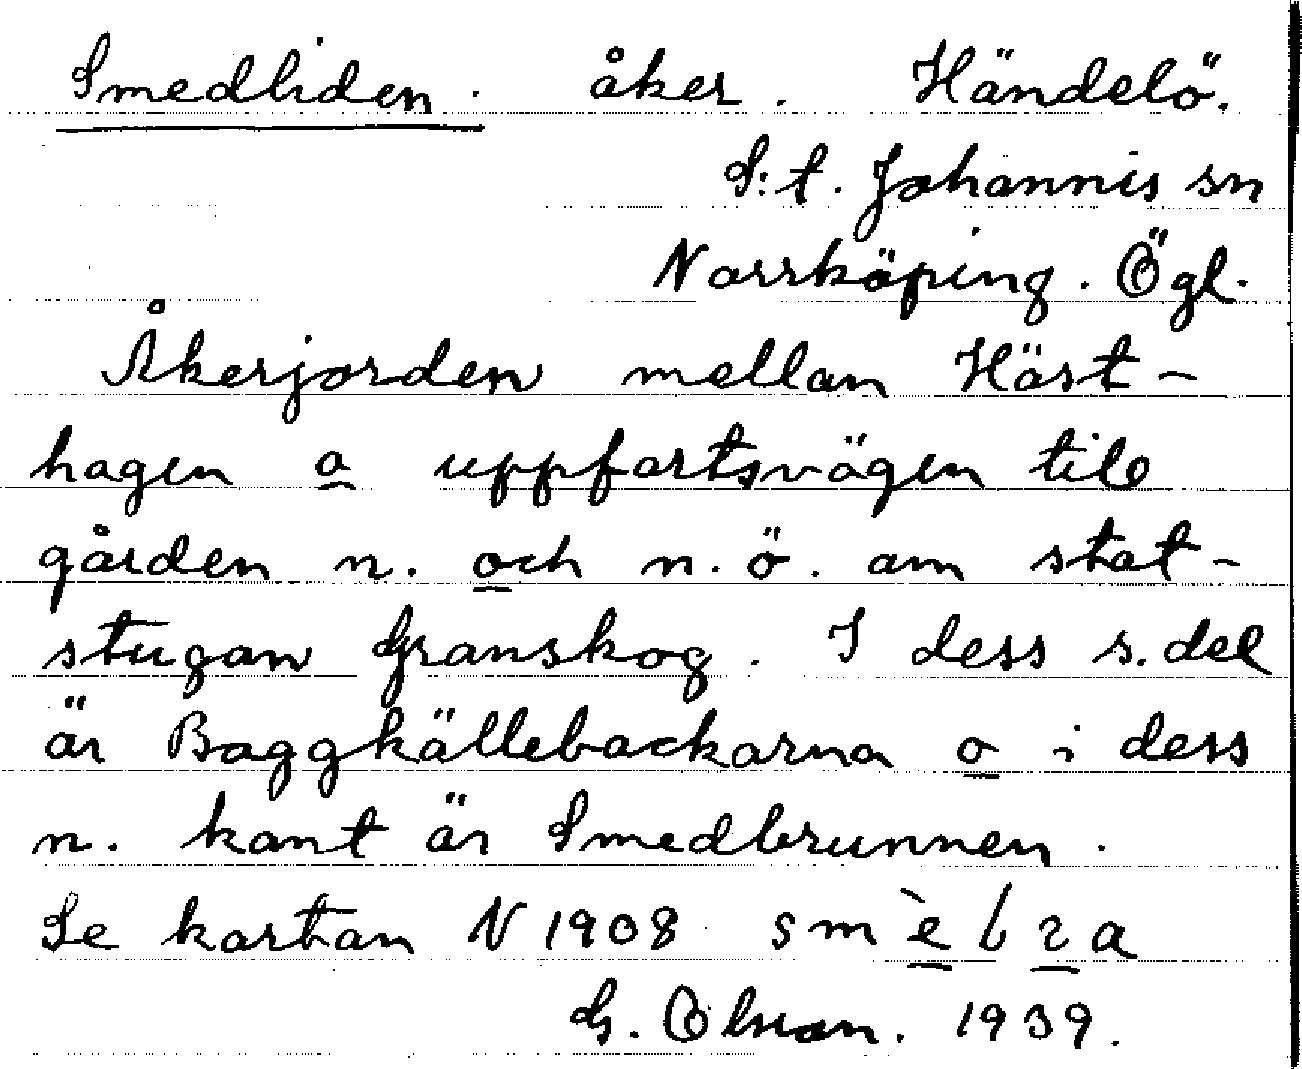 Smedliden. åker. Händelö.
S:t. Johannis sn
Norrköping. Ögl.
Åkerjorden mellan Häst-
hagen o uppfartsvägen till
gården n. och n.ö. om stat-
stugan Granskog. I dess s. del
är Baggkällebackarna o i dess
n. kant är Smedbrunnen.
Se kartan N 1908
G. Olsson. 1939.